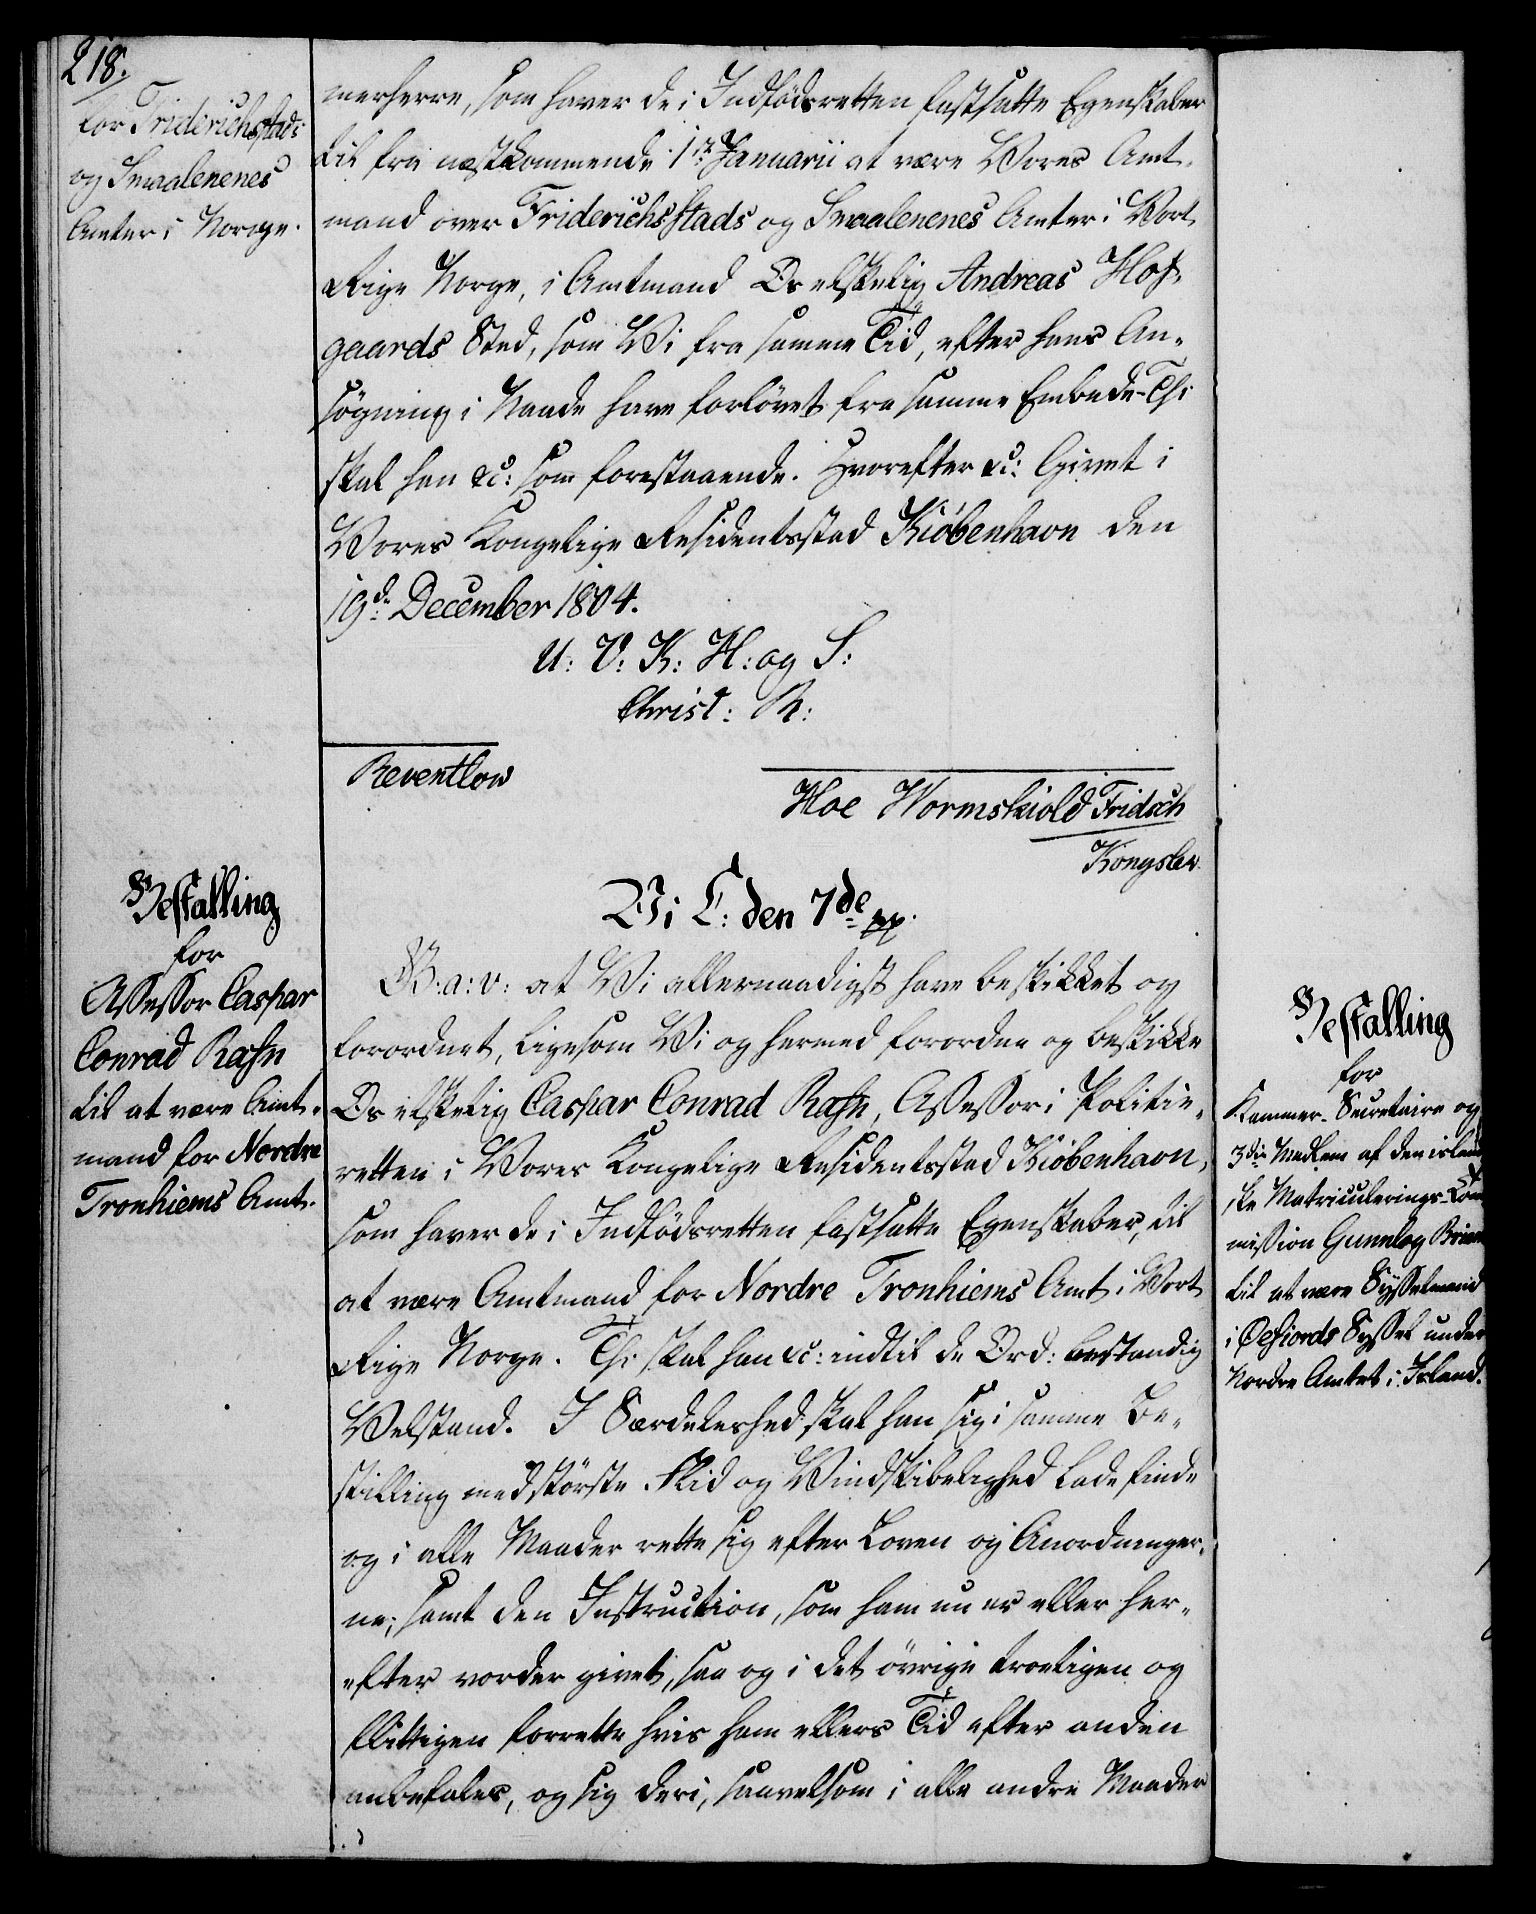 218.
for Friderichstads
og Smaalenenes
Amter i Norge.
merherre, som haver de i Indfødsretten fastsatte Egenskaber
til fra næstkommende 1ste Januarii at være Vores Amt-
mand over Friderichsstads og Smaalenenes Amter i Vort
Rige Norge, i Amtmand Os elskelig Andreas Høj-
gaards Sted, som Vi fra samme Tid, efter hans An-
søgning i Naade have forløvet fra samme Embede - Thi
skal han &c: som forestaaende. Hvorefter &c: Givet i
Vores Kongelige Residentsstad Kiøbenhavn den
19de December 1804.
U: V: K: H: og S:
Christ: R:
Reventlow
Hoe Wormskiold Fridsch
Kongslev
Bestalling
for
Assessor Caspar
Conrad Rafn
til at være Amt-
mand for Nordre
Tronhiems Amt.
Vi C: den 7de pp.
G: a: v: at Vi allernaadigst have beskikket og
forordnet, ligesom Vi og hermed forordne og beskikke
Os elskelig Caspar Conrad Rafn, Assessor i Politie-
retten i Vores Kongelige Residentsstad Kiøbenhavn,
som haver de i Indfødsretten fastsatte Egenskaber, til
at være Amtmand for Nordre Tronhiems Amt i Vort
Rige Norge. Thi skal han &c: indtil de Ord: bestandig
Velstand. I Særdeleshed skal han sig i samme Be-
stilling med største Flid og Vindskibelighed lade finde
og i alle Maader rette sig efter Loven og Anordninger-
ne, samt den Instruction, som ham nu er eller her-
efter vorder givet, saa og i det øvrige troeligen og
flittigen forrette hvis ham ellers Tid efter anden
anbefales, og sig deri, saavelsom i alle andre Maader
Bestalling
for
Kammer-Secretaire og
3die Medlem af den island
ske Matriculerings-Com
mission Gunnlog Briem
til at være Sysselmand
i Oefiords Syssel under
Nordre Amtet i Island.